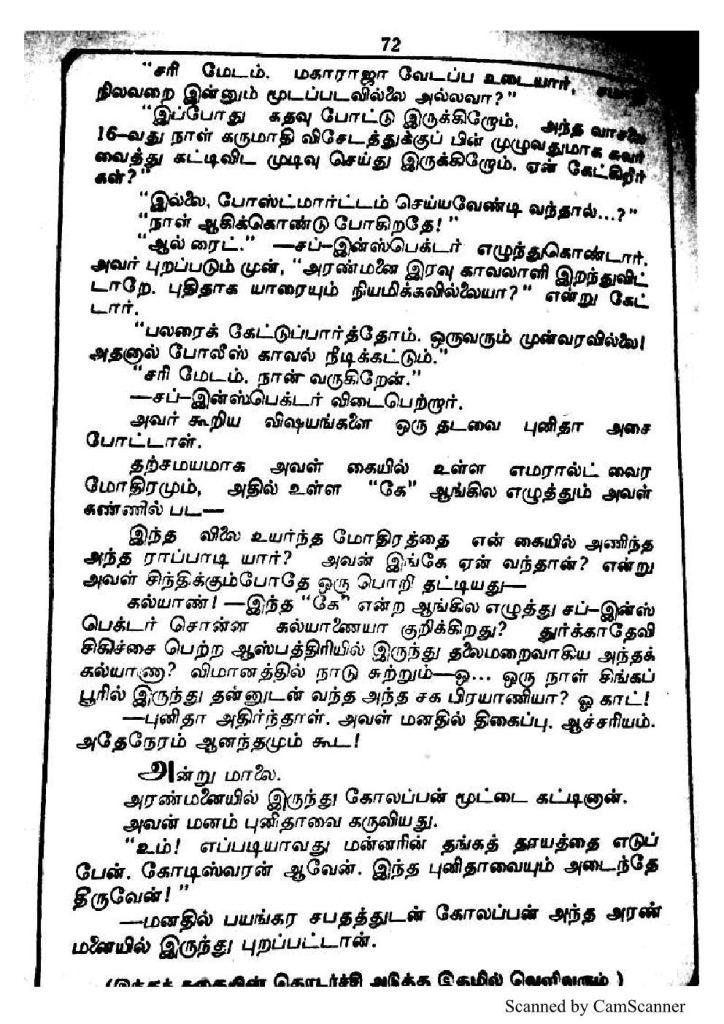 72
"சரி மேடம். மகாராஜா வேடப்ப உடையார்,
நிலவறை இன்னும் மூடப்படவில்லை அல்லவா?"
"இப்போது கதவு போட்டு இருக்கிறோம். அந்த வாசலை
16-வது நாள் கருமாதி விசேடத்துக்குப் பின் முழுவதுமாக சுவர்
வைத்து கட்டிவிட முடிவு செய்து இருக்கிறோம். ஏன் கேட்கிறீர்
கள்?"
"இல்லை, போஸ்ட்மார்ட்டம் செய்யவேண்டி வந்தால்...?"
"நான் ஆகிக்கொண்டு போகிறதே!"
"ஆல் ரைட்." —சப்-இன்ஸ்பெக்டர் எழுந்துகொண்டார்.
அவர் புறப்படும் முன், "அரண்மனை இரவு காவலாளி இறந்துவிட்
டாறே. புதிதாக யாரையும் நியமிக்கவில்லையா?" என்று கேட்
டார்.
"பலரைக் கேட்டுப்பார்த்தோம். ஒருவரும் முன்வரவில்லை!
அதனால் போலீஸ் காவல் நீடிக்கட்டும்."
"சரி மேடம். நான் வருகிறேன்."
—சப்-இன்ஸ்பெக்டர் விடைபெற்றார்.
அவர் கூறிய விஷயங்களை ஒரு தடவை புனிதா அசை
போட்டாள்.
தற்சமயமாக அவள் கையில் உள்ள எமரால்ட் வைர
மோதிரமும், அதில் உள்ள "கே" ஆங்கில எழுத்தும் அவள்
கண்ணில் பட—
இந்த விலை உயர்ந்த மோதிரத்தை என் கையில் அணிந்த
அந்த ராப்பாடி யார்? அவன் இங்கே ஏன் வந்தான்? என்று
அவள் சிந்திக்கும்போதே ஒரு பொறி தட்டியது—
கல்யாண்! —இந்த "கே" என்ற ஆங்கில எழுத்து சப்-இன்ஸ்
பெக்டர் சொன்ன கல்யாணையா குறிக்கிறது? துர்க்காதேவி
சிகிச்சை பெற்ற ஆஸ்பத்திரியில் இருந்து தலைமறைவாகிய அந்தக்
கல்யாணா? விமானத்தில் நாடு சுற்றும்—ஓ... ஒரு நாள் சிங்கப்
பூரில் இருந்து தன்னுடன் வந்த அந்த சக பிரயாணியா? ஓ காட்!
—புனிதா அதிர்ந்தாள். அவள் மனதில் திகைப்பு. ஆச்சரியம்.
அதேநேரம் ஆனந்தமும் கூட!
அன்று மாலை.
அரண்மனையில் இருந்து கோலப்பன் மூட்டை கட்டினான்.
அவன் மனம் புனிதாவை கருவியது.
"உம்! எப்படியாவது மன்னரின் தங்கத் தாயத்தை எடுப்
பேன். கோடிஸ்வரன் ஆவேன். இந்த புனிதாவையும் அடைந்தே
தீருவேன்!"
—மனதில் பயங்கர சபதத்துடன் கோலப்பன் அந்த அரண்
மனையில் இருந்து புறப்பட்டான்.
(இந்தக் கதையின் தொடர்ச்சி அடுத்த இதழில் வெளிவரும்)
Scanned by CamScanner